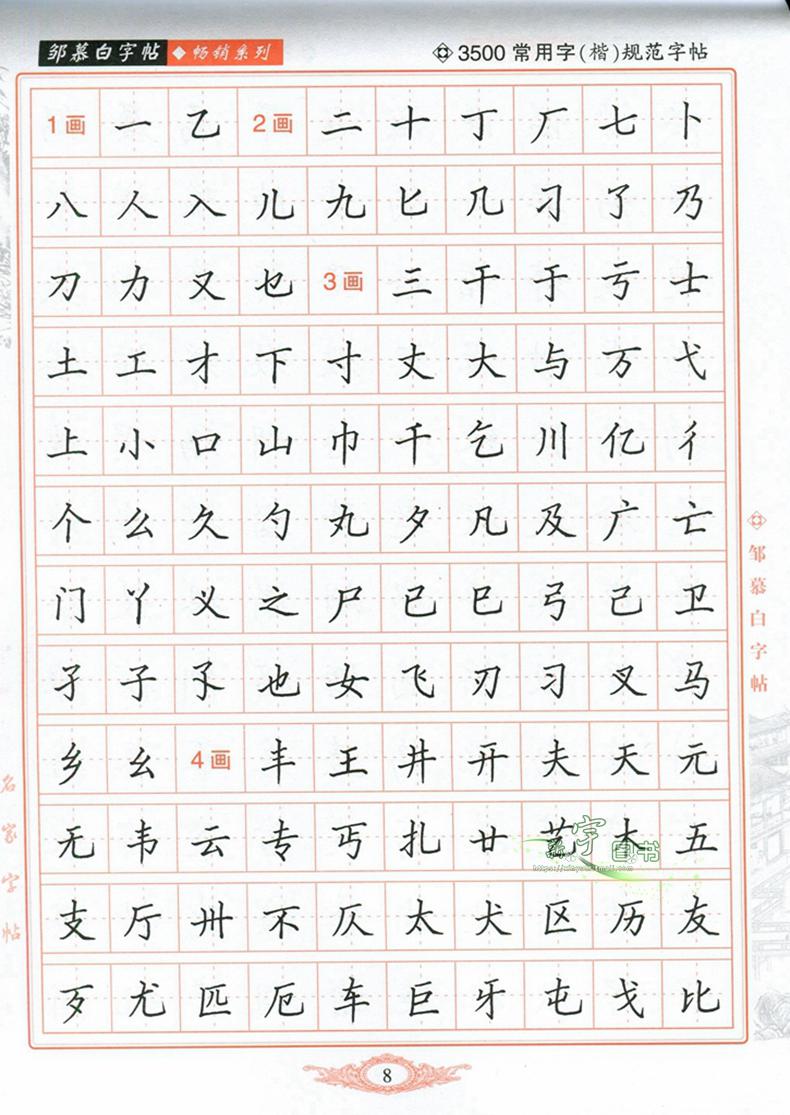 邹慕白字帖 畅销系列
3500常用字(楷)规范字帖
1画 一 乙 2画 二 十 丁 厂 七 卜
八 人 入 儿 九 匕 几 刁 了 乃
刀 力 又 乜 3画 三 干 于 亏 士
土 工 才 下 寸 丈 大 与 万 弋
上 小 口 山 巾 千 乞 川 亿 彳
个 么 久 勺 丸 夕 凡 及 广 亡
门 丫 义 之 尸 已 巳 弓 己 卫
孑 子 孓 也 女 飞 刃 习 叉 马
乡 幺 4画 丰 王 井 开 夫 天 元
无 韦 云 专 丐 扎 廿 艺 木 五
支 厅 卅 不 仄 太 犬 区 历 友
歹 尤 匹 厄 车 巨 牙 屯 戈 比
字图书
邹慕白字帖
名家字帖
8